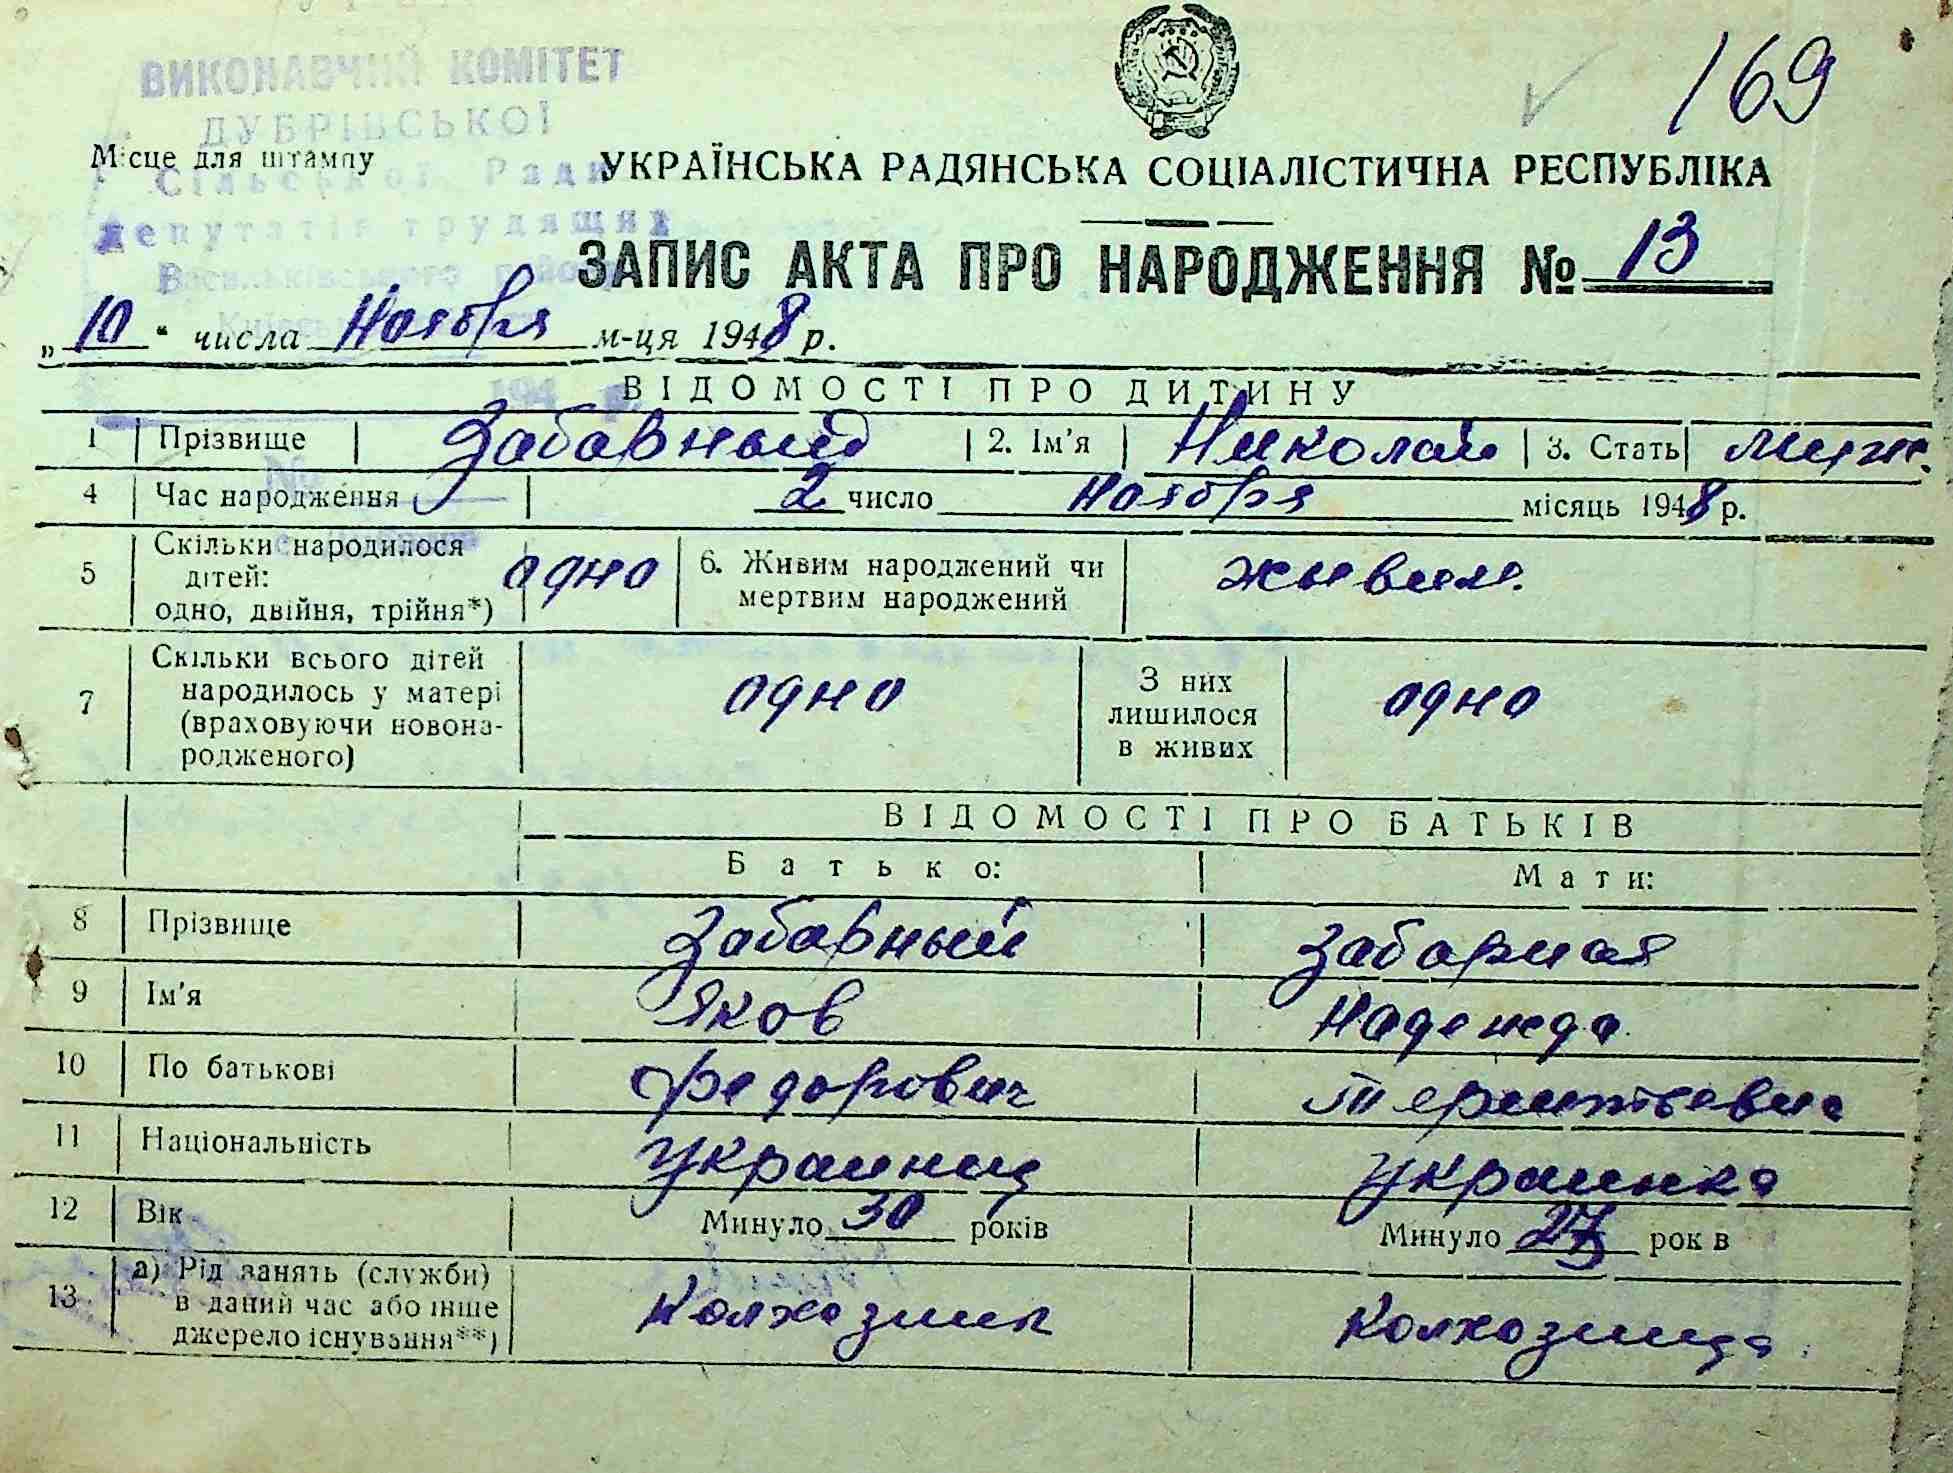 169
ВИКОНАВЧИЙ КОМІТЕТ
ДУБРІВСЬКОЇ
Місце для штампу
Сільської Ради
депутатів трудящих
Васильківського району
УКРАЇНСЬКА РАДЯНСЬКА СОЦІАЛІСТИЧНА РЕСПУБЛІКА
ЗАПИС АКТА ПРО НАРОДЖЕННЯ № 13
„10“ числа Ноября м-ця 1948 р.
194 р.
ВІДОМОСТІ ПРО ДИТИНУ
1 Прізвище Забавный 2. Ім'я Николай 3. Стать муж.
№
4 Час народження 2 число Ноября місяць 1948 р.
5 Скільки народилося дітей: одно, двійня, трійня*) одно 6. Живим народжений чи мертвим народжений живим.
7 Скільки всього дітей народилось у матері (враховуючи новонародженого) одно З них лишилося в живих одно
ВІДОМОСТІ ПРО БАТЬКІВ
Батько: Мати:
8 Прізвище Забавный Забарная
9 Ім'я Яков Надежда
10 По батькові Федорович
11 Національність Украинец Украинка
12 Вік Минуло 30 років Минуло рок в
13 а) Рід занять (служби) в даний час або інше джерело існування**) Колхозник Колхозница